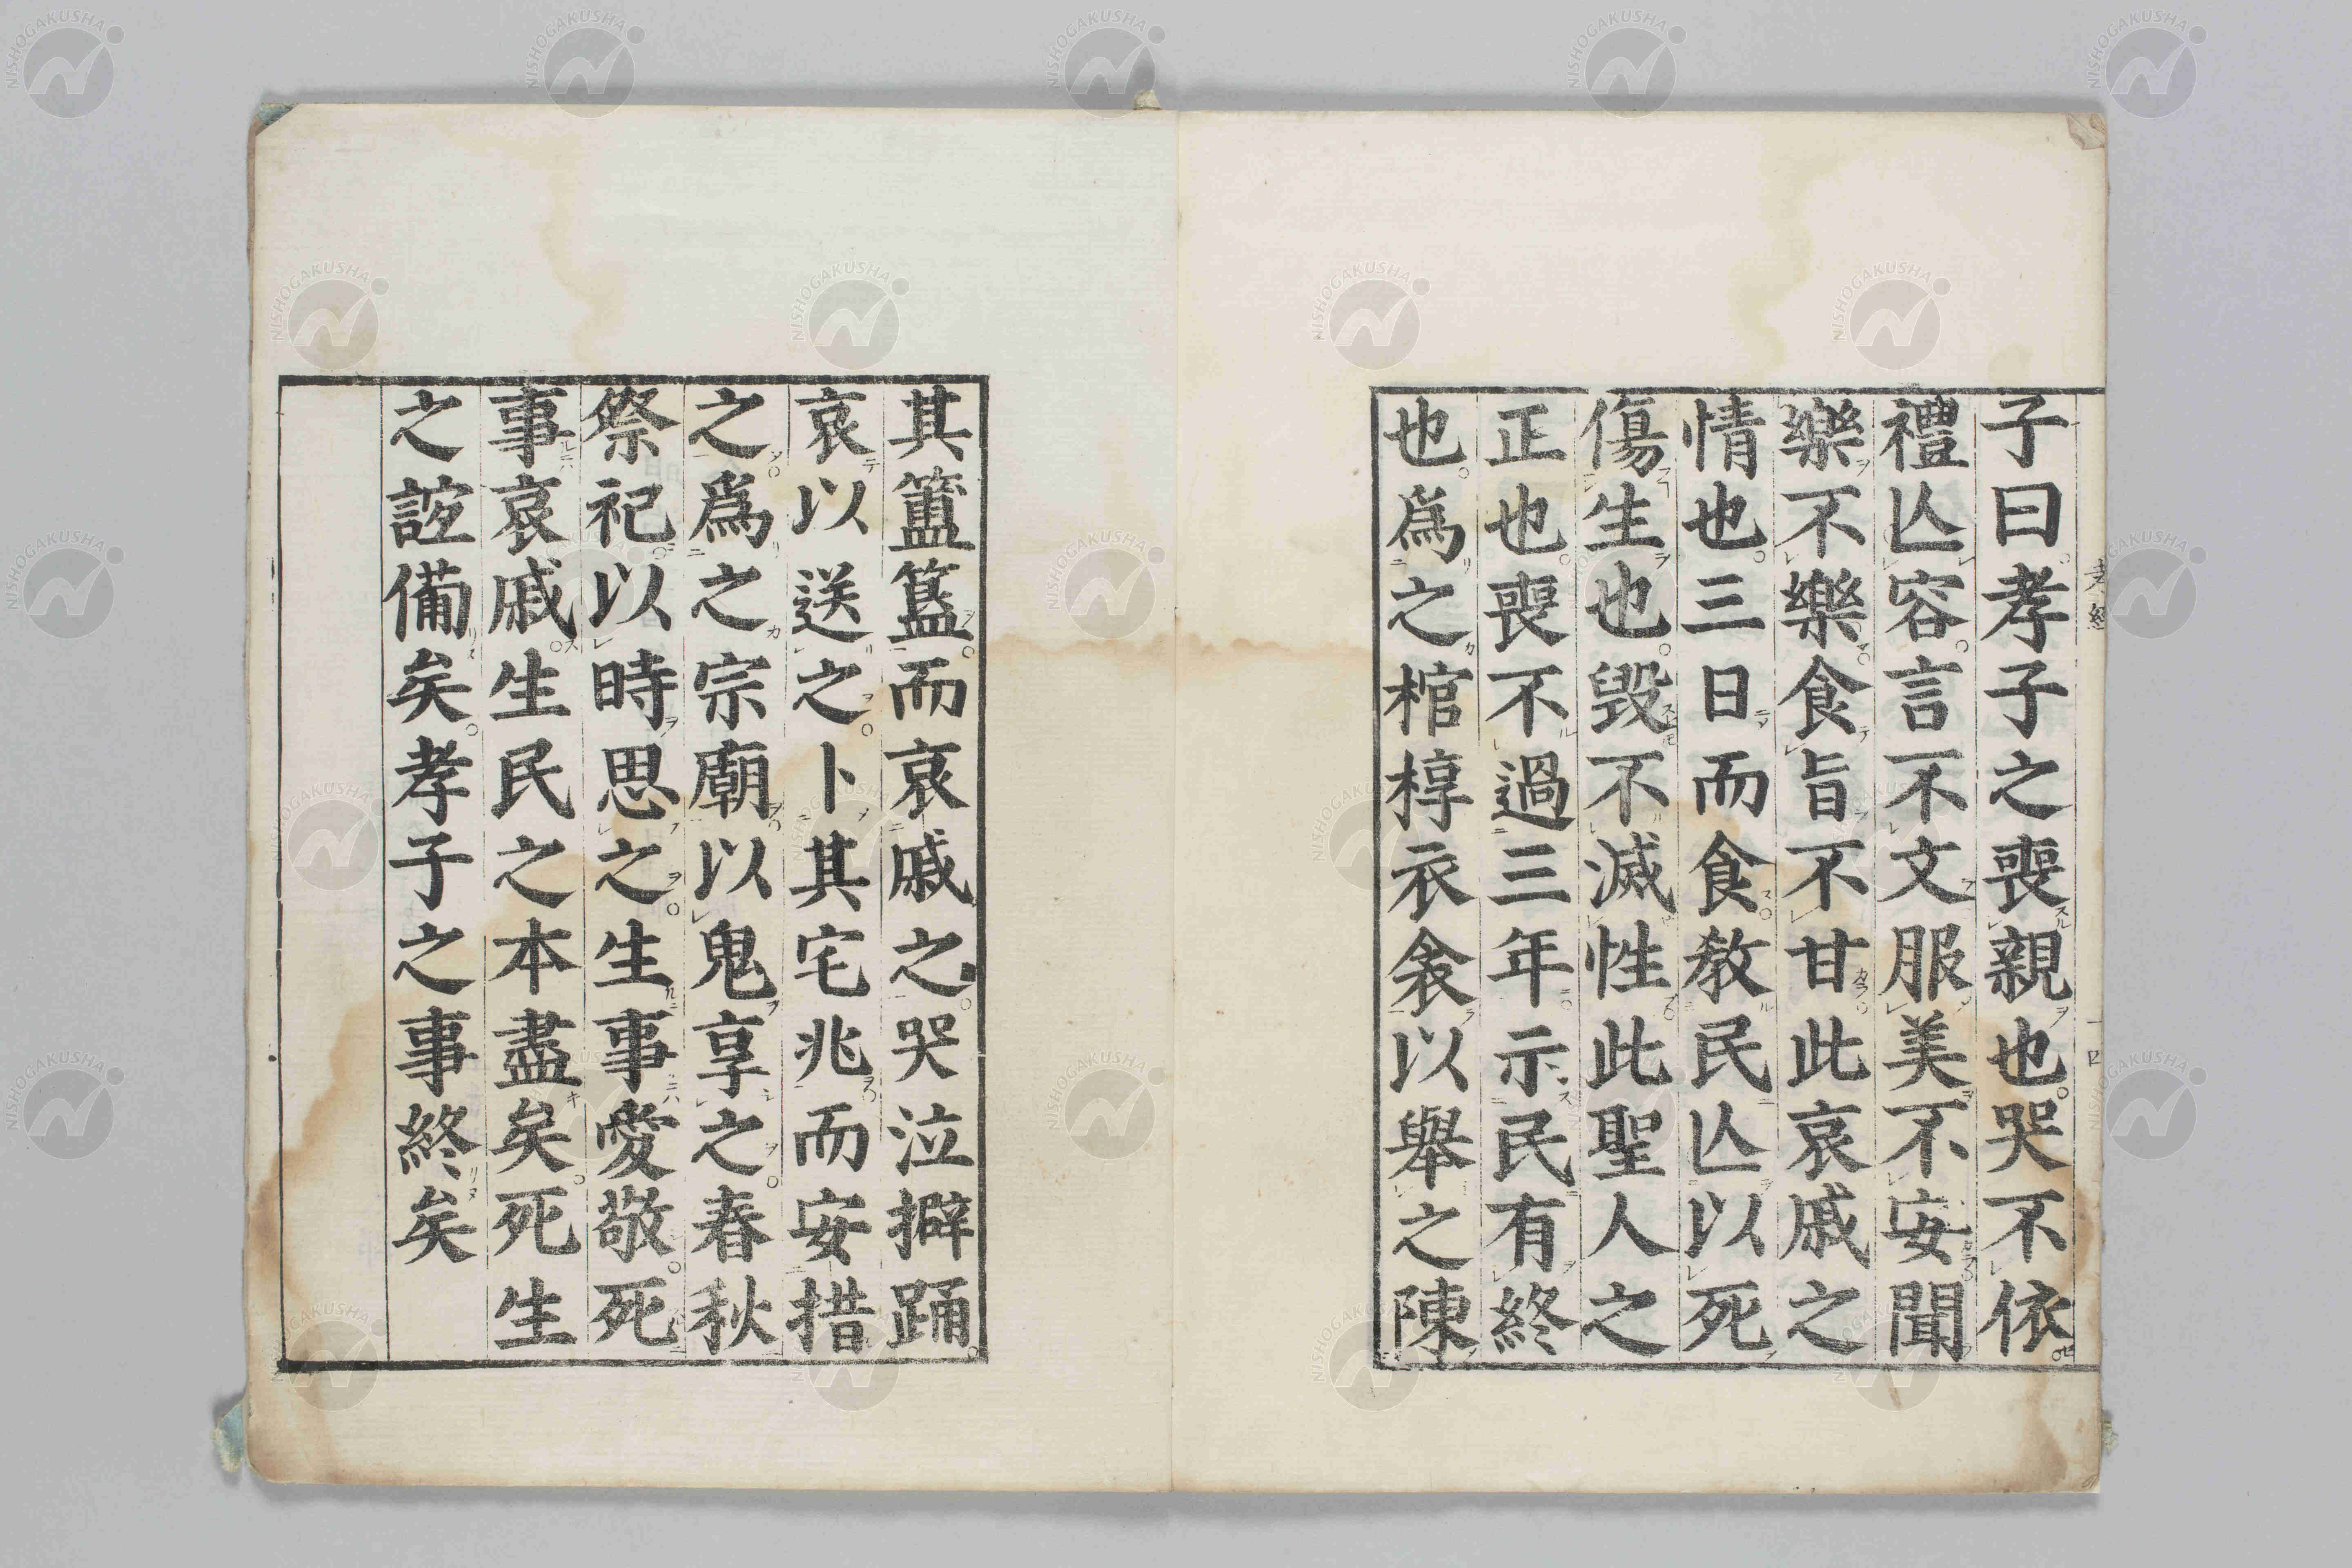 子曰孝子之喪親也哭不依
禮亾容言不文服美不安聞
樂不樂食旨不甘此哀戚之
情也三日而食教民亾以死
傷生也毀不滅性此聖人之
正也喪不過三年示民有終
也爲之棺椁衣衾以舉之陳
其簠簋而哀戚之哭泣擗踊
哀以送之卜其宅兆而安措
之爲之宗廟以鬼享之春秋
祭祀以時思之生事愛敬死
事哀戚生民之本盡矣死生
之誼備矣孝子之事終矣
NISHOGAKUSHA